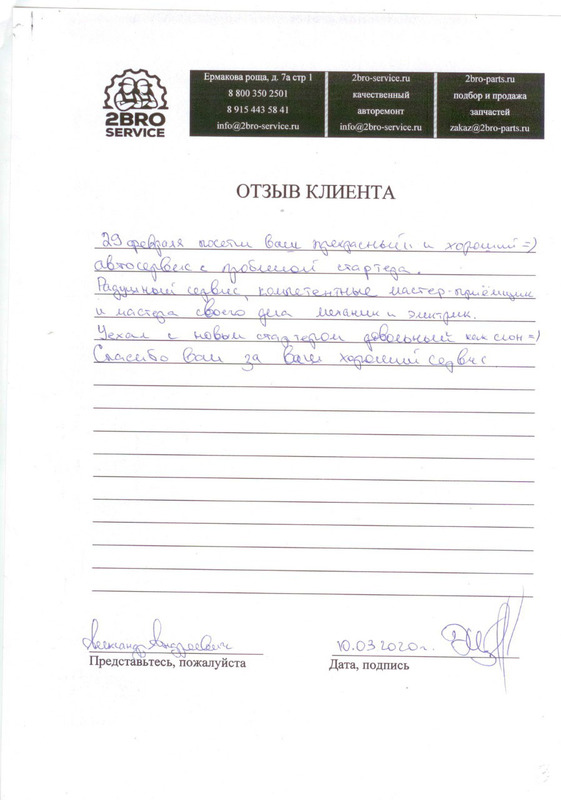 2BRO
SERVICE
Ермакова роща, д. 7а стр 1
8 800 350 2501
8 915 443 58 41
info@2bro-service.ru
2bro-service.ru
качественный
авторемонт
info@2bro-service.ru
2bro-parts.ru
подбор и продажа
запчастей
zakaz@2bro-parts.ru
ОТЗЫВ КЛИЕНТА
29 февраля посетил Ваш прекрасный и хороший =)
автосервис с проблемой стартера.
Радушный сервис, компетентные мастер-приёмщик
и мастера своего дела механик и электрик.
Уехал с новым стартером довольный как слон =)
Спасибо Вам за Ваш хороший сервис.
Александр Андреевич
10.03.2020г.
Представьтесь, пожалуйста
Дата, подпись